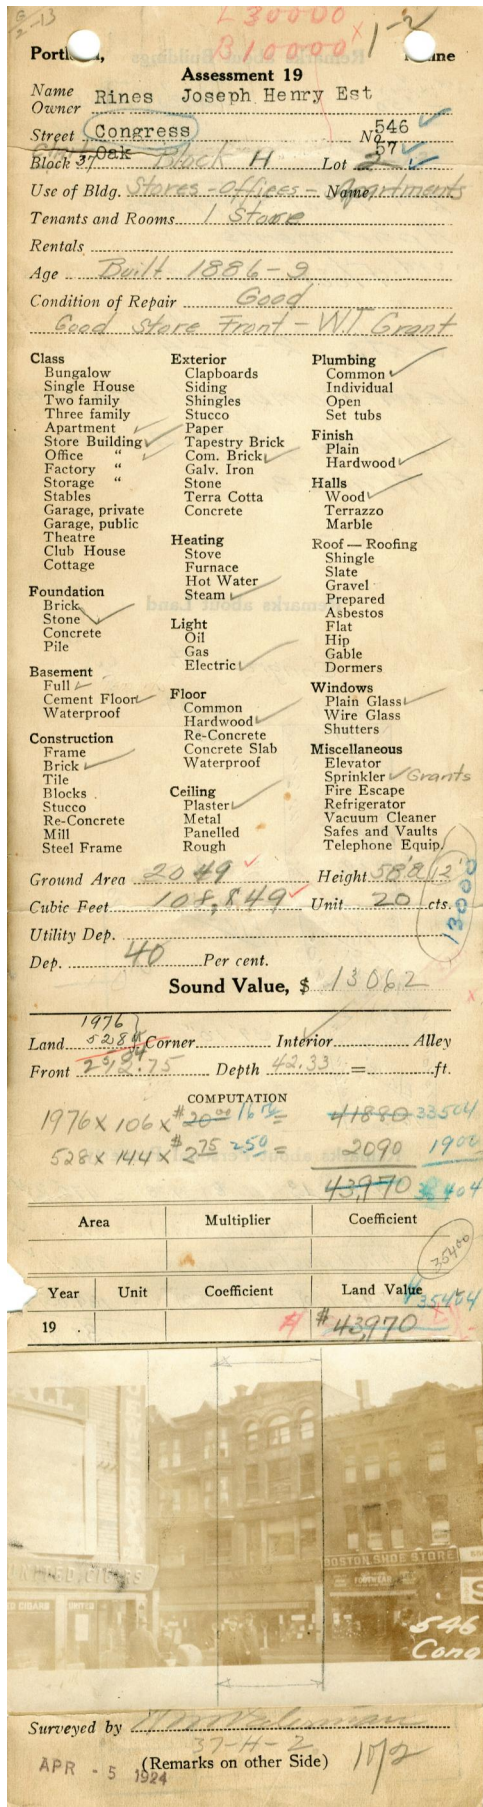 G
2-13
L30000
B10000 x
1-2
Portland, Maine
Assessment 19
Name
Owner Rines Joseph Henry Est
Street Congress No. 546
Oak 57
Block 37 Block H Lot 2
Use of Bldg. Stores-Offices- Name Apartments
Tenants and Rooms 1 Store
Rentals
Age Built 1886-9
Condition of Repair Good
Good Store Front - W.T. Grant
Class
Bungalow
Single House
Two family
Three family
Apartment
Store Building
Office "
Factory "
Storage "
Stables
Garage, private
Garage, public
Theatre
Club House
Cottage
Foundation
Brick
Stone
Concrete
Pile
Basement
Full
Cement Floor
Waterproof
Construction
Frame
Brick
Tile
Blocks
Stucco
Re-Concrete
Mill
Steel Frame
Exterior
Clapboards
Siding
Shingles
Stucco
Paper
Tapestry Brick
Com. Brick
Galv. Iron
Stone
Terra Cotta
Concrete
Heating
Stove
Furnace
Hot Water
Steam
Light
Oil
Gas
Electric
Floor
Common
Hardwood
Re-Concrete
Concrete Slab
Waterproof
Ceiling
Plaster
Metal
Panelled
Rough
Plumbing
Common
Individual
Open
Set tubs
Finish
Plain
Hardwood
Halls
Wood
Terrazzo
Marble
Roof — Roofing
Shingle
Slate
Gravel
Prepared
Asbestos
Flat
Hip
Gable
Dormers
Windows
Plain Glass
Wire Glass
Shutters
Miscellaneous
Elevator
Sprinkler Grants
Fire Escape
Refrigerator
Vacuum Cleaner
Safes and Vaults
Telephone Equip.
Ground Area 2049 Height 58'8 12'
Cubic Feet 108,849 Unit 20 cts.
13000
Utility Dep.
Dep. 40 Per cent.
Sound Value, $ 13062
1976
Land 528 Corner Interior Alley
Front Depth 42.33 = ft.
COMPUTATION
1976 x 106 x $20.00 16.00 = 41880 33504
528 x 144 x $2.75 2.50 = 2090 1900
43,970 35404
Area Multiplier Coefficient
35400
Year Unit Coefficient Land Value
35404
19 $43,970
UNITED CIGARS
ED CIGARS UNITED
BOSTON SHOE STORE
FOOTWEAR
S
546
Cong
Surveyed by
37-H-2
(Remarks on other Side)
APR - 5 1924